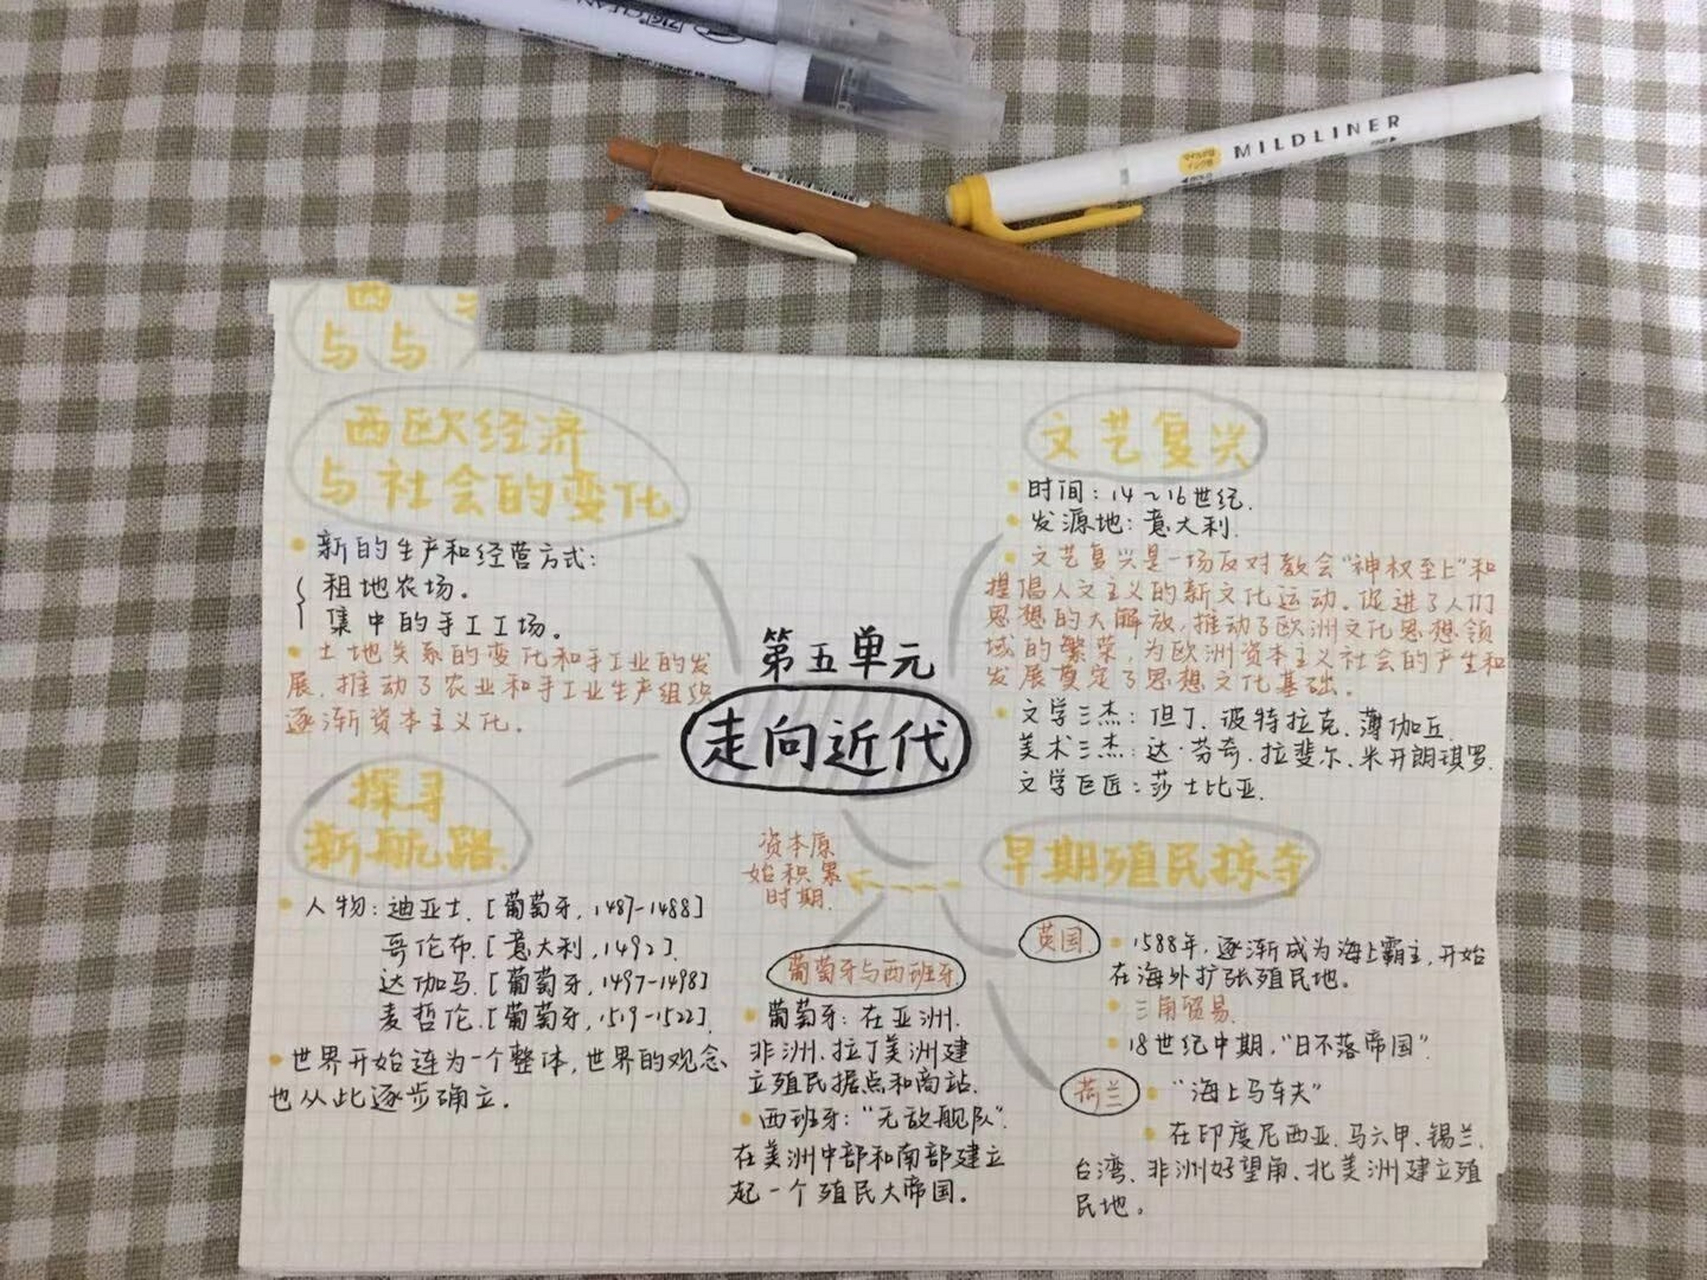 MILDLINER
西
与 与
西欧经济
与社会的变化
新的生产和经营方式:
租地农场。
集中的手工工场。
土地关系的变化和手工业的发
展,推动了农业和手工业生产组织
逐渐资本主义化.
探寻
新航路.
人物:迪亚士.[葡萄牙,1487-1488]
哥伦布.[意大利,1492].
达伽马.[葡萄牙,1497-1498]
麦哲伦.[葡萄牙,1519-1522].
世界开始连为一个整体,世界的观念
也从此逐步确立.
第五单元
走向近代
文艺复兴
时间:14~16世纪.
发源地:意大利.
文艺复兴是一场反对教会“神权至上”和
提倡人文主义的新文化运动.促进了人们
思想的大解放,推动了欧洲文化思想领
域的繁荣,为欧洲资本主义社会的产生和
发展奠定了思想文化基础。
文学三杰:但丁.彼特拉克.薄伽丘.
美术三杰:达·芬奇.拉斐尔.米开朗琪罗.
文学巨匠:莎士比亚.
早期殖民掠夺
资本原
始积累
时期.
葡萄牙与西班牙
葡萄牙:在亚洲.
非洲.拉丁美洲建
立殖民据点和商站.
西班牙:“无敌舰队”.
在美洲中部和南部建立
起一个殖民大帝国。
英国.
1588年,逐渐成为海上霸主,开始
在海外扩张殖民地。
三角贸易.
18世纪中期,“日不落帝国”.
荷兰
“海上马车夫”
在印度尼西亚.马六甲、锡兰.
台湾、非洲好望角、北美洲建立殖
民地。